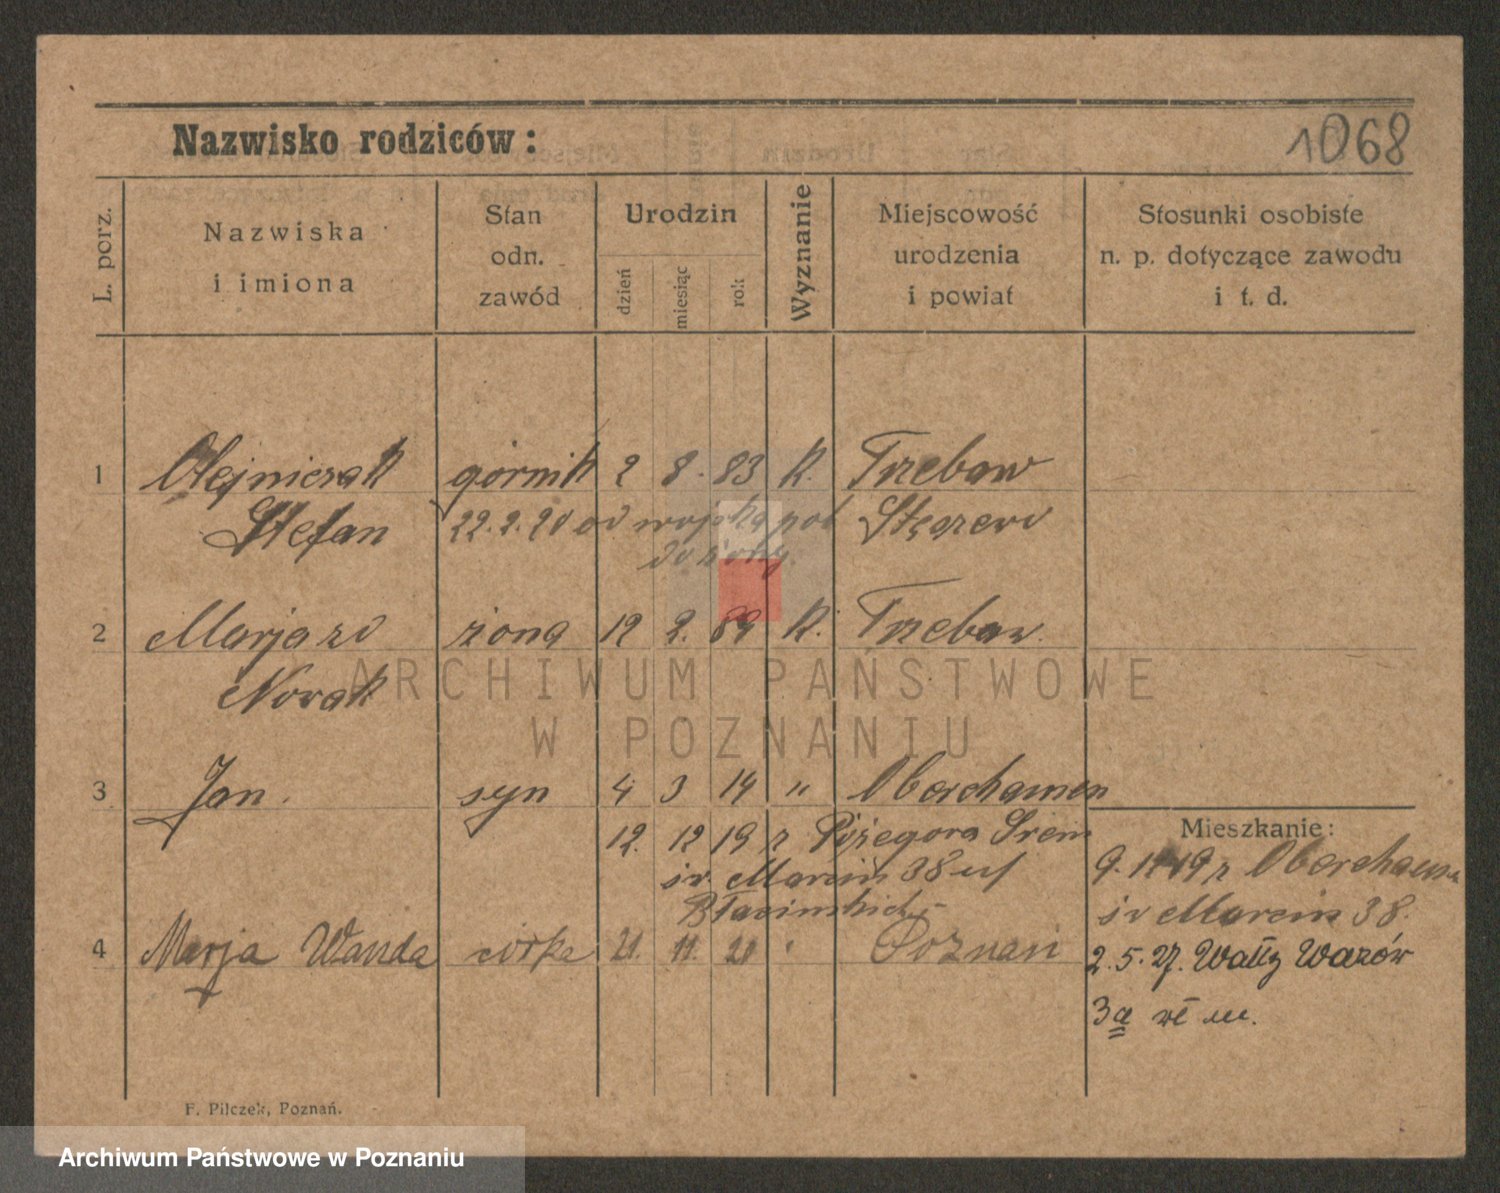 Nazwisko rodziców:
1068
L. porz.
Nazwiska
i imiona
Stan
odn.
zawód
Urodzin
dzień
miesiąc
rok
Wyznanie
Miejscowość
urodzenia
i powiat
Stosunki osobiste
n. p. dotyczące zawodu
i t. d.
1 Olejniczak górnik 2 8. 83 K. Trzebaw
Stefan 22.2.20 od wojska pol Stęszewo
2 Marja zd żona 12 2. 89 K. Trzebaw.
Nowak
ARCHIWUM PAŃSTWOWE
W POZNANIU
3 Jan. syn 4 3 14 " Oberchamen
12. 12 19 z Pożegora Śrem
św. Marcin 38 u
Mieszkanie:
9. 11 19 z Oberchamen
św Marcin 38.
4 Marja Wanda córka 21. 11. 21 " Poznań
2.5.27. Wały Wazów
3a
F. Pilczek, Poznań.
Archiwum Państwowe w Poznaniu